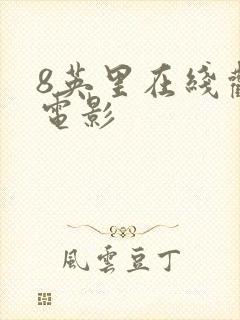 8英里在綫
電影
風雲豆丁